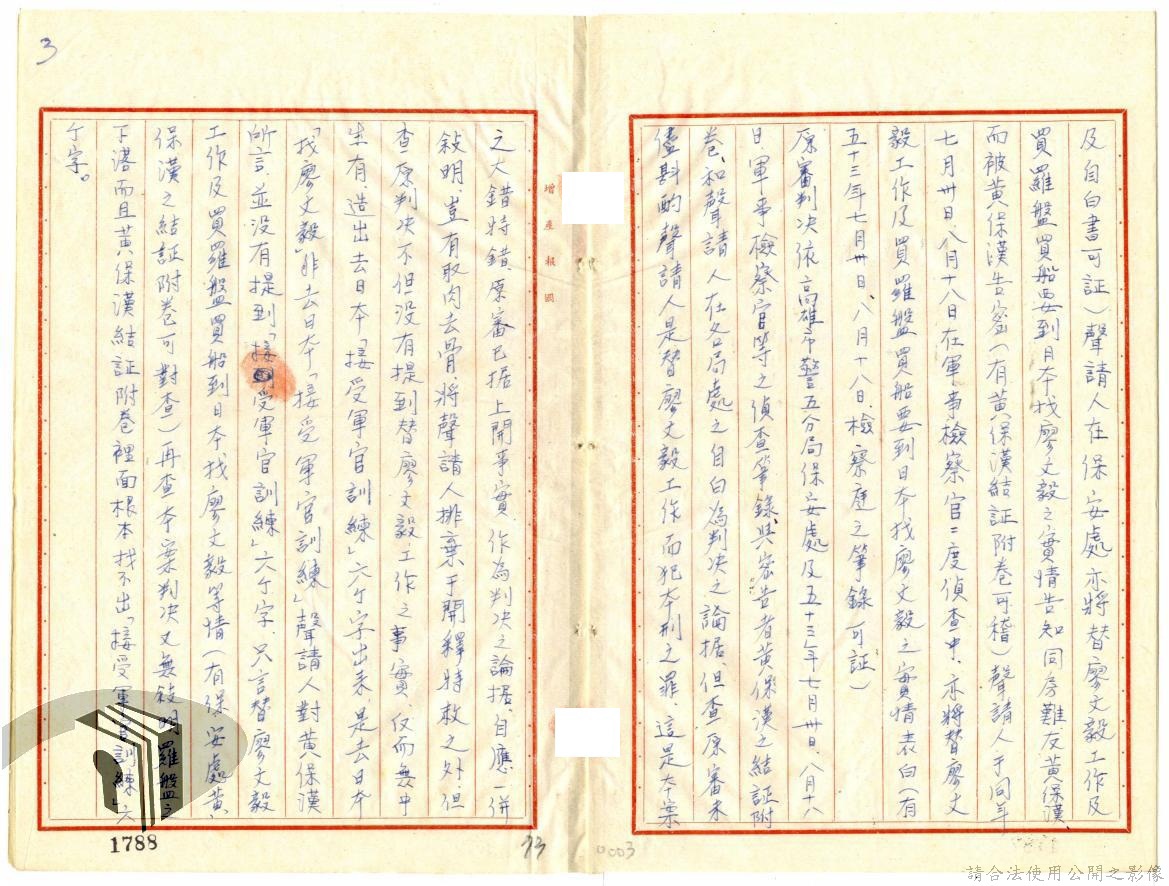 3
及自白書可証）聲請人在保安處亦將替廖文毅工作及
買羅盤買船要到日本找廖文毅之實情告知同房難友黃保漢、
而被黃保漢告密（有黃保漢結証附卷可稽）聲請人于同年
七月卅日、八月十八日在軍事檢察官二度偵查中、亦將替廖文
毅工作及買羅盤買船要到日本找廖文毅之實情表白（有
五十三年七月卅日、八月十八日、檢察庭之筆錄可証）
原審判决依高雄市警五分局保安處及五十三年七月卅日、八月十八
日、軍事檢察官等之偵查筆錄與密告者黃保漢之結証附
卷、和聲請人在各局處之自白為判决之論据、但查、原審未
儘斟酌聲請人是替廖文毅工作而犯本刑之罪、這是本案
增產報國
之大錯特錯、原審已据上開事實、作為判决之論据、自應一併
敍明、豈有取肉去骨、將聲請人排棄于開釋特赦之外、但
查原判决不但没有提到替廖文毅工作之事實、仅而無中
生有、造出去日本「接受軍官訓練」六个字出來、是去日本
「找廖文毅」非去日本「接受軍官訓練」聲請人對黃保漢
所言、並没有提到「接受軍官訓練」六个字、只言替廖文毅
工作及買羅盤買船到日本找廖文毅等情（有保安處黃、
保漢之結証附卷可對查）再查本案判决又無敍明羅盤之
下落而且黃保漢結証附卷裡面根本找不出「接受軍官訓練」六
个字。
1788
73
0003
請合法使用公開之影像